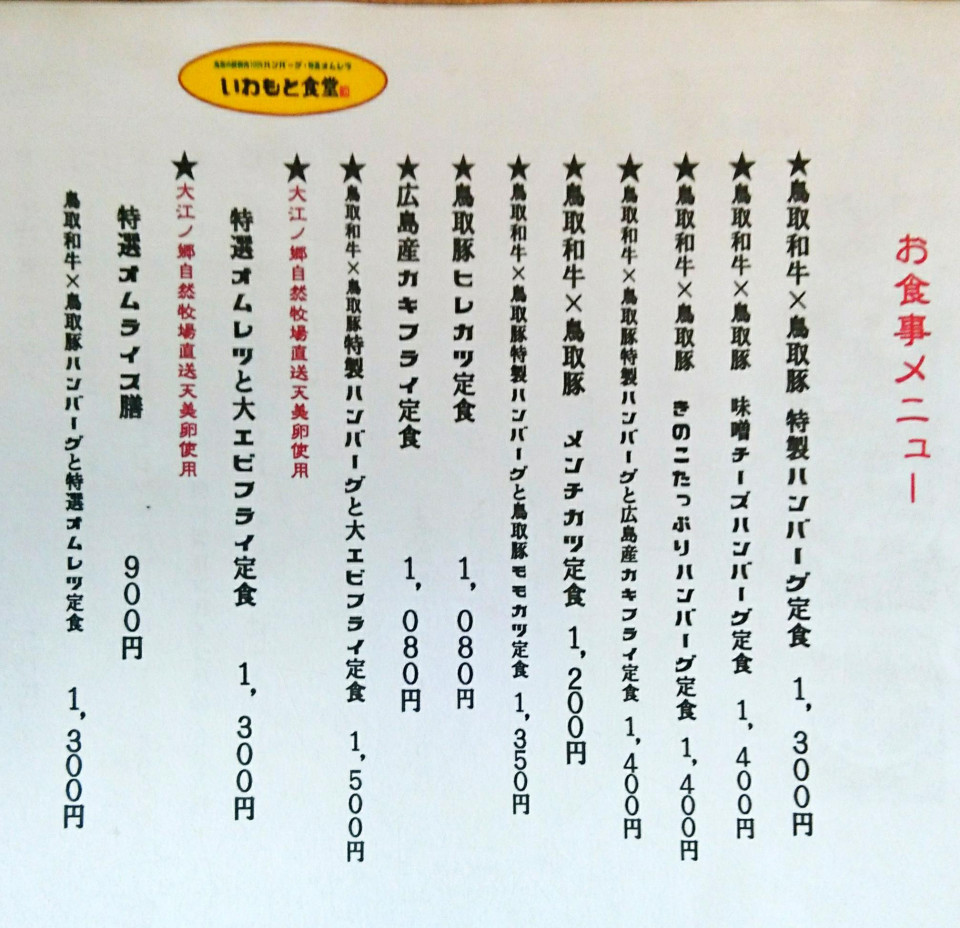 お食事メニュー
★鳥取和牛×鳥取豚 特製ハンバーグ定食 1,300円
★鳥取和牛×鳥取豚 味噌チーズハンバーグ定食 1,400円
★鳥取和牛×鳥取豚 きのこたっぷりハンバーグ定食 1,400円
★鳥取和牛×鳥取豚特製ハンバーグと広島産カキフライ定食 1,400円
★鳥取和牛×鳥取豚 メンチカツ定食 1,200円
★鳥取和牛×鳥取豚特製ハンバーグと鳥取豚モモカツ定食 1,350円
★鳥取豚ヒレカツ定食 1,080円
★広島産カキフライ定食 1,080円
★鳥取和牛×鳥取豚特製ハンバーグと大エビフライ定食 1,500円
★大江ノ郷自然牧場直送天美卵使用
特選オムレツと大エビフライ定食 1,300円
★大江ノ郷自然牧場直送天美卵使用
特選オムライス膳 900円
鳥取和牛×鳥取豚ハンバーグと特選オムレツ定食 1,300円
いわもと食堂